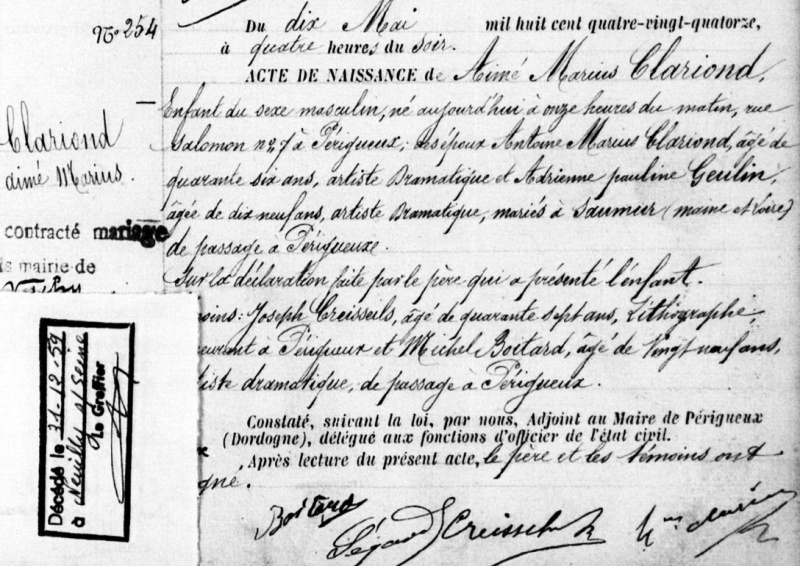 N° 254
Clariond
Aimé Marius.
contracté mariage
mairie de
Décédé le 31-12-59
à Neuilly s/ Seine
Le Greffier
Du dix Mai mil huit cent quatre-vingt-quatorze,
à quatre heures du soir.
ACTE DE NAISSANCE de Aimé Marius Clariond,
Enfant du sexe masculin, né aujourd'hui à onze heures du matin, rue
Salomon n° 7 à Périgueux; des époux Antoine Marius Clariond, âgé de
quarante six ans, artiste Dramatique et Adrienne pauline Geulin,
âgée de dix neuf ans, artiste Dramatique, mariés à Saumur (maine et Loire)
de passage à Périgueux.
Sur la déclaration faite par le père qui a présenté l'enfant.
Joseph Creisseils, âgé de quarante sept ans, Lithographe
à Périgueux et Michel Boitard, âgé de Vingt neuf ans,
dramatique, de passage à Périgueux.
Constaté, suivant la loi, par nous, Adjoint au Maire de Périgueux
(Dordogne), délégué aux fonctions d'officier de l'état civil.
Après lecture du présent acte, le père et les témoins ont
gné.
Boitard
Creisseils